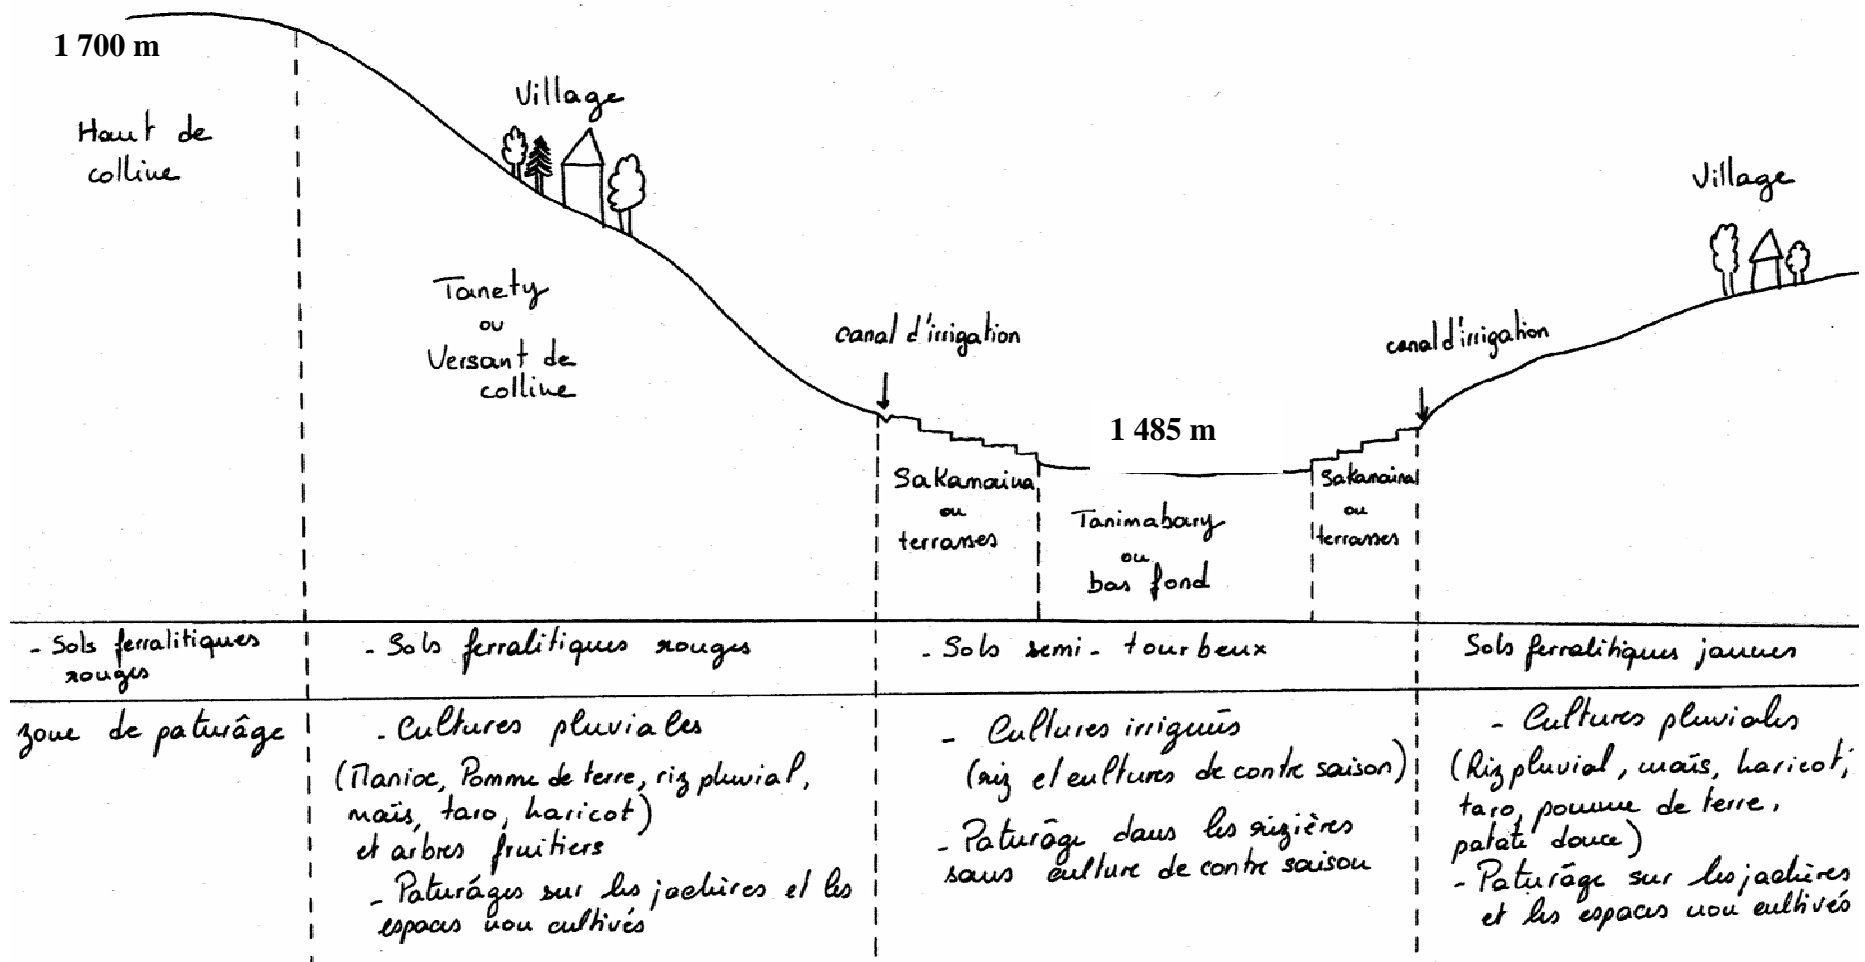 1 700 m
Haut de
colline
Village
Tanety
ou
Versant de
colline
canal d'irrigation
Sakamaina
ou
terrasses
1 485 m
Tanimabary
ou
bas fond
Sakamaina
ou
terrasses
canal d'irrigation
Village
- Sols ferralitiques
rouges
- Sols ferralitiques rouges
- Sols semi-tourbeux
Sols ferralitiques jaunes
zone de paturâge
- Cultures pluviales
(Manioc, Pomme de terre, riz pluvial,
maïs, taro, haricot)
et arbres fruitiers
- Paturâges sur les jachères et les
espaces non cultivés
- Cultures irriguées
(riz et cultures de contre saison)
- Paturâge dans les rizières
sans culture de contre saison
- Cultures pluviales
(Riz pluvial, maïs, haricot,
taro, pomme de terre,
patate douce)
- Paturâge sur les jachères
et les espaces non cultivés